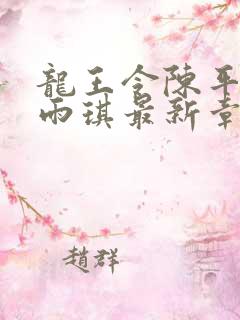 龍王令陳平
雨琪最新章
趙群